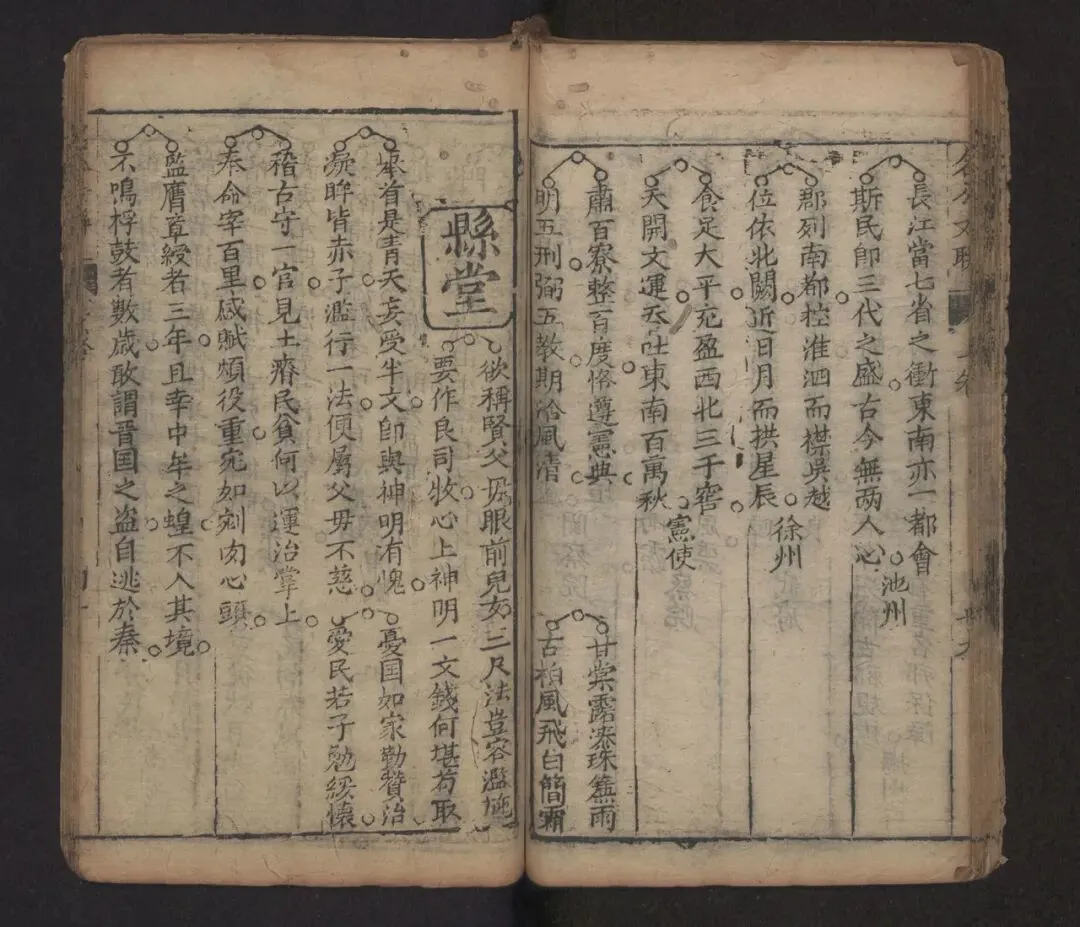 長江當七省之衝東南亦一都會
斯民即三代之盛古今無两人心
池州
郡列南都控淮泗而襟吳越
位依北闕近日月而拱星辰
徐州
食足太平充盈西北三千窖
天開文運丕壮東南百萬秋
憲使
肅百寮整百度恪遵憲典
明五刑弼五教期洽風清
甘棠露滴珠簾雨
古柏風飛白簡霜
縣堂
欲稱賢父母眼前兒女三尺法豈容濫施
要作良司牧心上神明一文錢何堪苟取
舉首是青天妄受半文即與神明有愧
凝眸皆赤子濫行一法便屬父母不慈
憂国如家勤贊治
愛民若子勉綏懷
稽古守一官見土瘠民貧何以運治掌上
奉命宰百里感賦煩役重宛如剜肉心頭
監膺章綬者三年且幸中牟之蝗不入其境
不鳴桴鼓者數歲敢謂晋国之盗自逃於秦